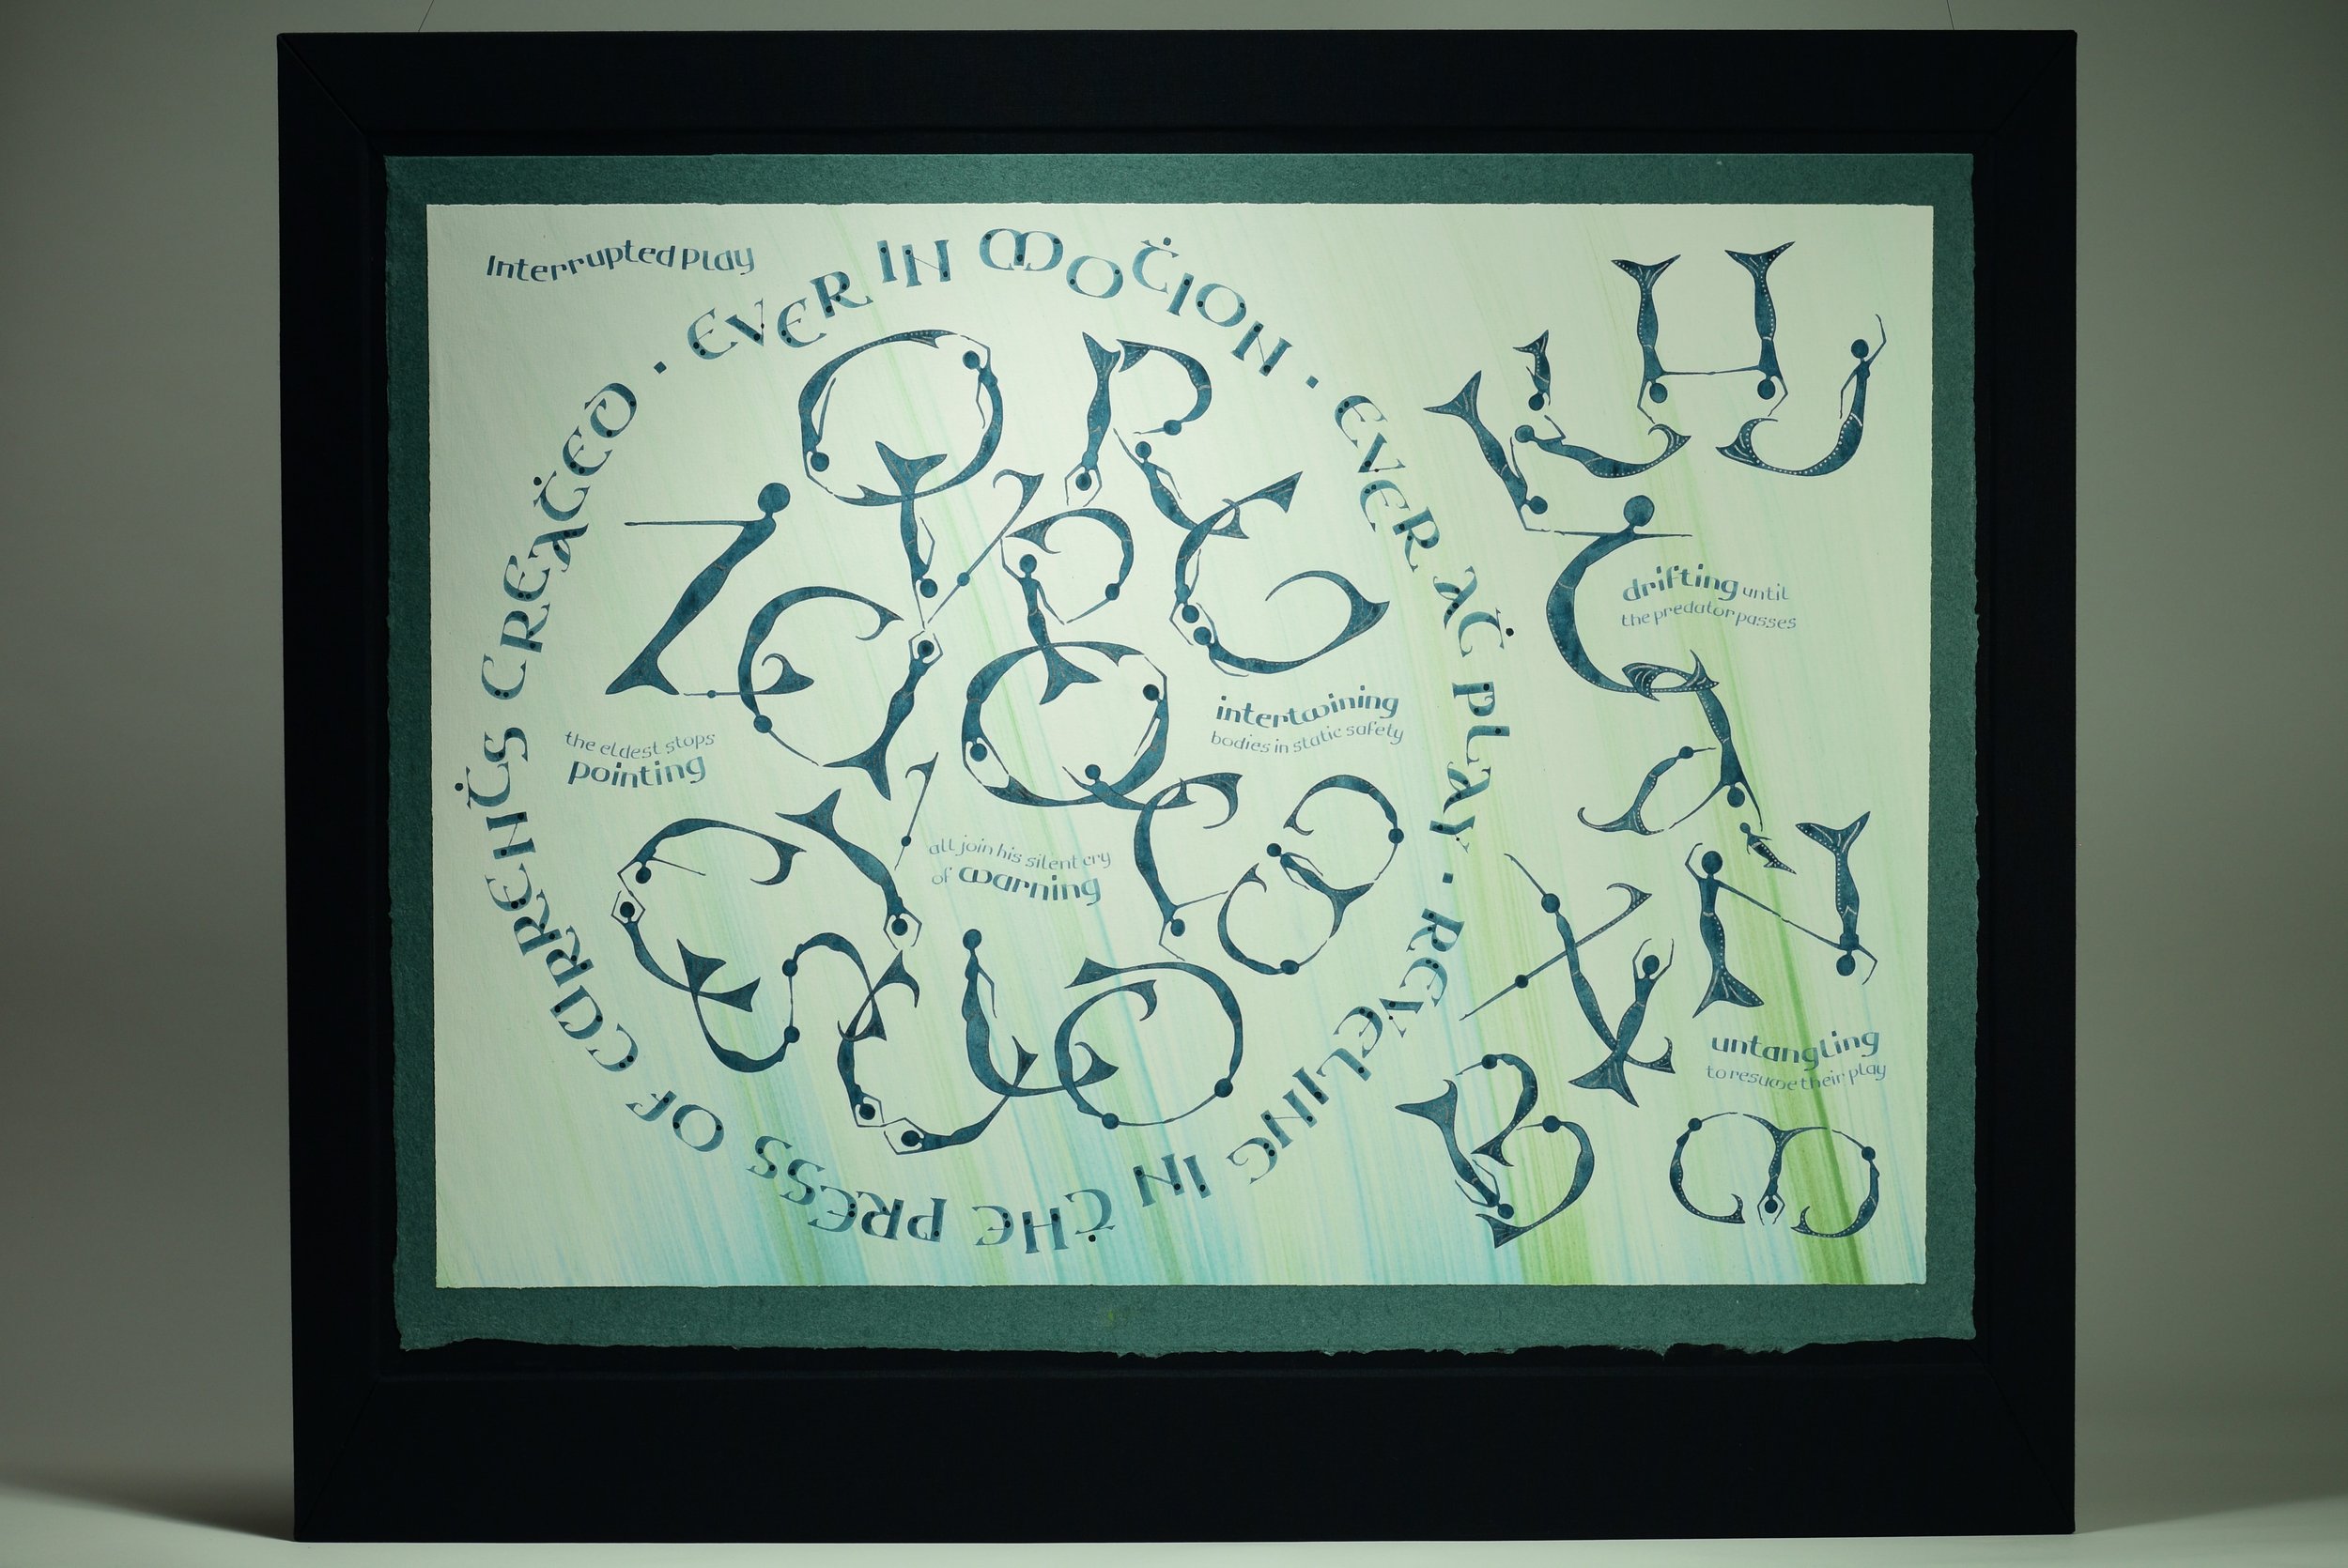 Interrupted play
EVER IN MOTION · EVER AT PLAY · REVELING IN THE PRESS OF CURRENTS CREATED ·
the eldest stops
pointing
all join his silent cry
of warning
intertwining
bodies in static safety
drifting until
the predator passes
untangling
to resume their play